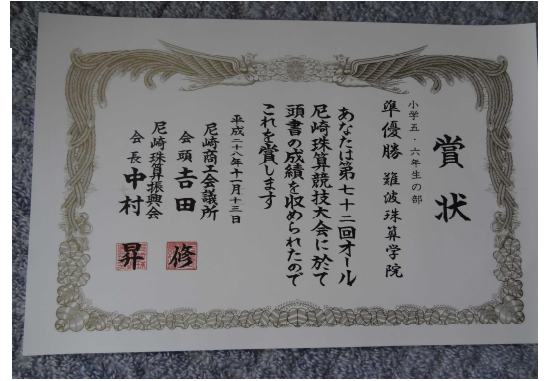 賞状
小学五・六年生の部
準優勝 難波珠算学院
あなたは第七十二回オール
尼崎珠算競技大会に於て
頭書の成績を収められたので
これを賞します
平成二十八年十一月十三日
尼崎商工会議所
会頭 吉田 修
尼崎珠算振興会
会長 中村 昇